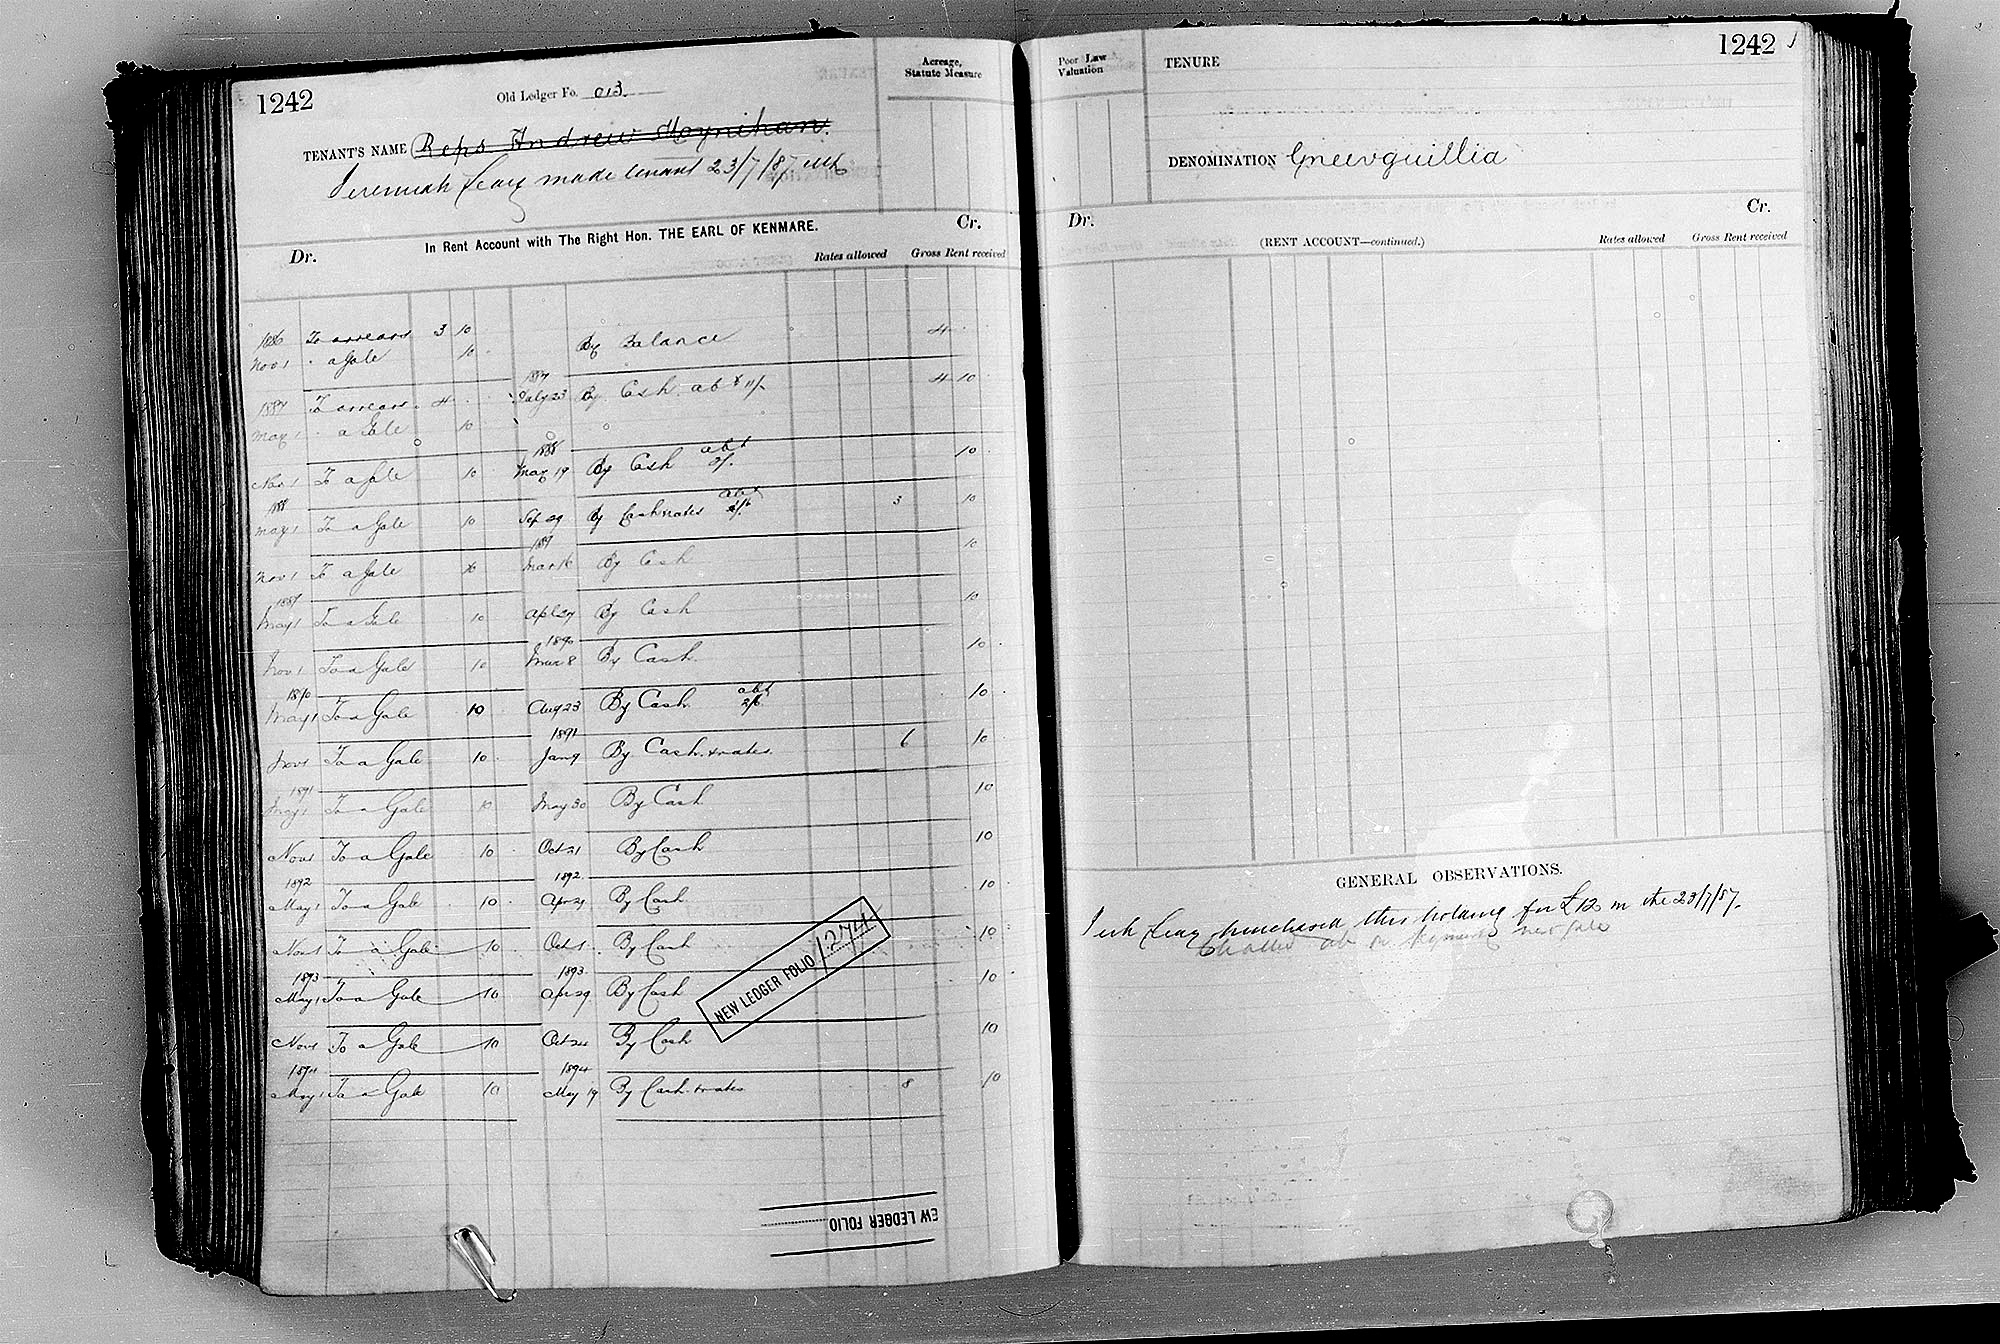 1242
Old Ledger Fo. 013
Acreage,
Statute Measure
TENANT'S NAME Reps Andrew Moynihan.
Jeremiah Leary made tenant 23/7/87
In Rent Account with The Right Hon. THE EARL OF KENMARE.
Dr. Cr.
Rates allowed Gross Rent received
1886 To arrears 3 10 By Balance 4
Nov 1 " a Gale 10
1887 To arrears 4 1887 July 23 By Cash abt 11/- 4 10
May 1 " a Gale 10
Nov 1 To a Gale 10 1888 May 19 By Cash abt 2/- 10
1888 May 1 To a Gale 10 Sep 29 By Cash & rates abt 3 10
Nov 1 To a Gale 10 1889 Mar 16 By Cash 10
1889 May 1 To a Gale 10 Apl 27 By Cash 10
Nov 1 To a Gale 10 1890 Mar 8 By Cash 10
1890 May 1 To a Gale 10 Aug 23 By Cash abt 2/6 10
Nov 1 To a Gale 10 1891 Jan 9 By Cash & rates 6 10
1891 May 1 To a Gale 10 May 30 By Cash 10
Nov 1 To a Gale 10 Oct 21 By Cash 10
1892 May 1 To a Gale 10 1892 Apr 21 By Cash 10
Nov 1 To a Gale 10 Oct 1 By Cash 10
1893 May 1 To a Gale 10 1893 Apr 29 By Cash 10
Nov 1 To a Gale 10 Oct 24 By Cash 10
1894 May 1 To a Gale 10 1894 May 19 By Cash & rates 8 10
NEW LEDGER FOLIO 1274
EW LEDGER FOLIO
1242
Poor Law
Valuation
TENURE
DENOMINATION Gneevguillia
Dr. Cr.
(RENT ACCOUNT—continued.)
Rates allowed Gross Rent received
GENERAL OBSERVATIONS.
Jerh Leary purchased this holding for £12 on the 23/7/87.